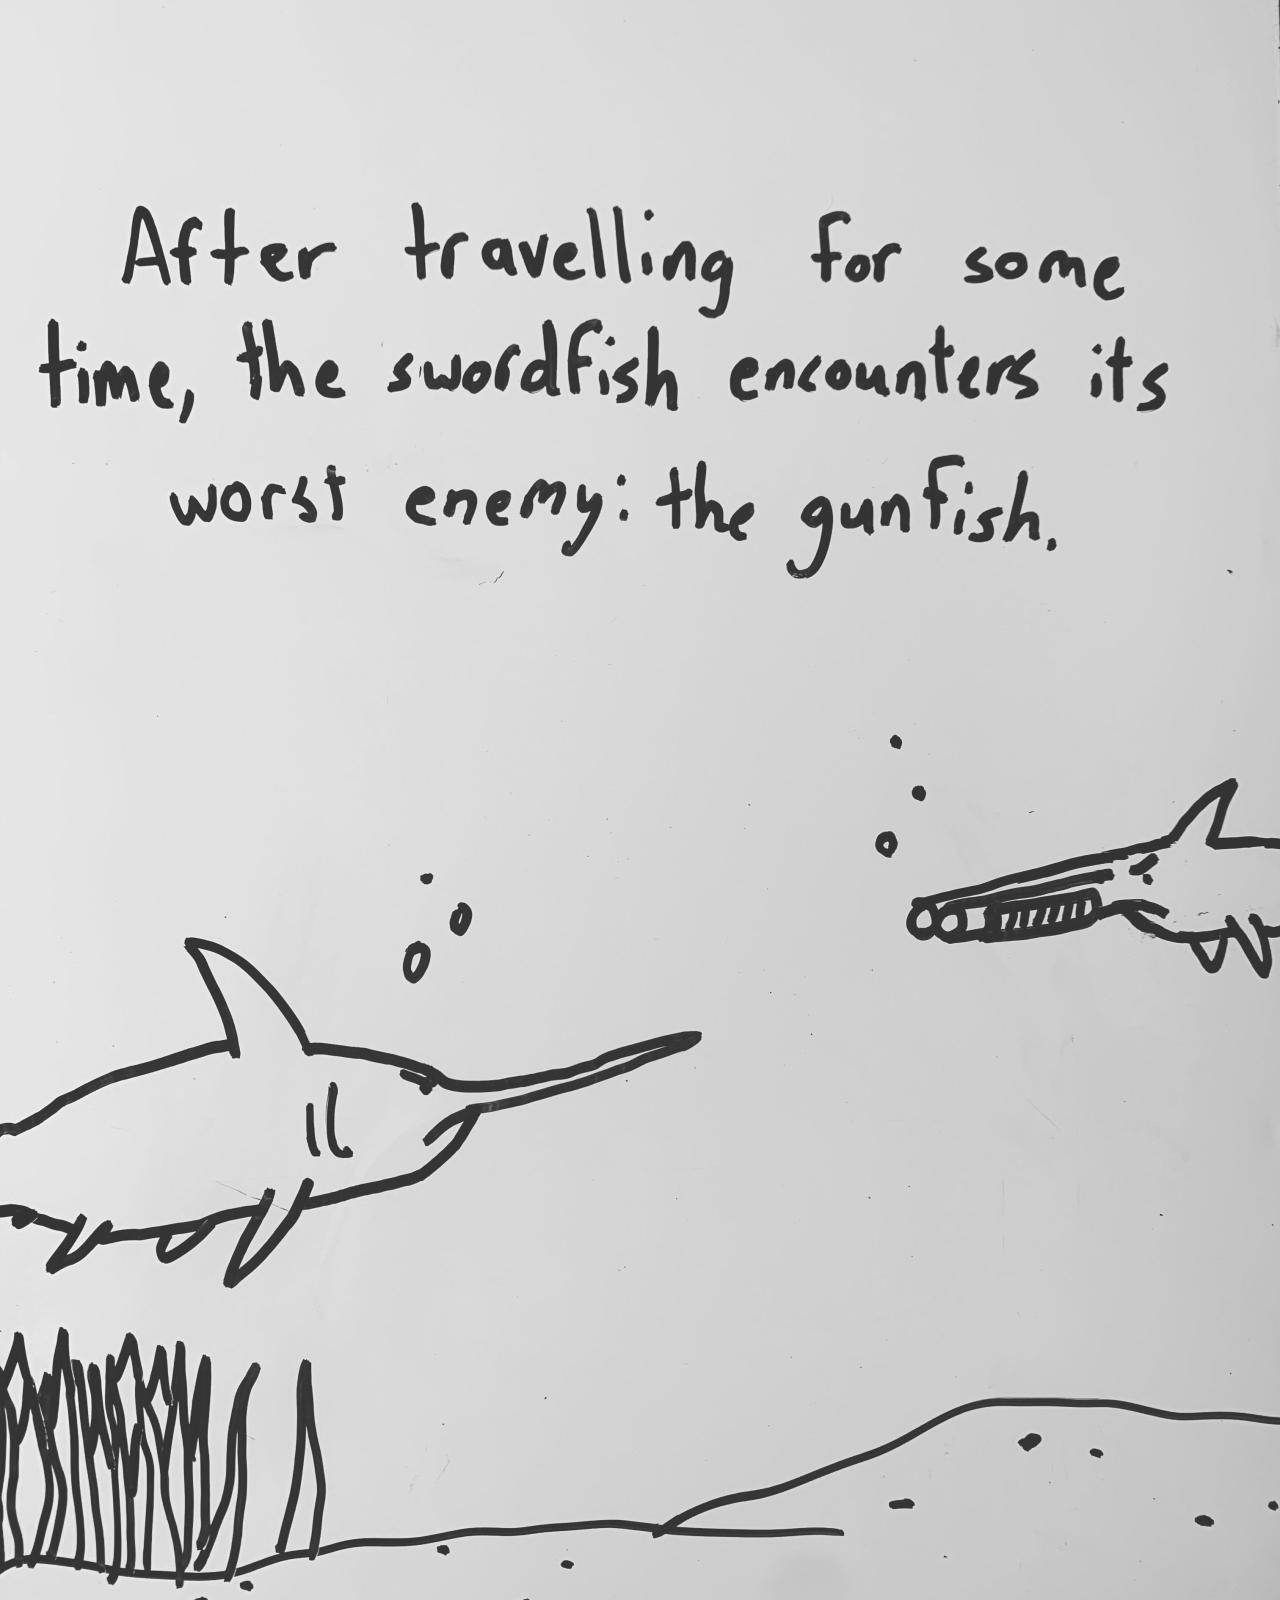 After travelling for some
time, the swordfish encounters its
worst enemy: the gunfish.